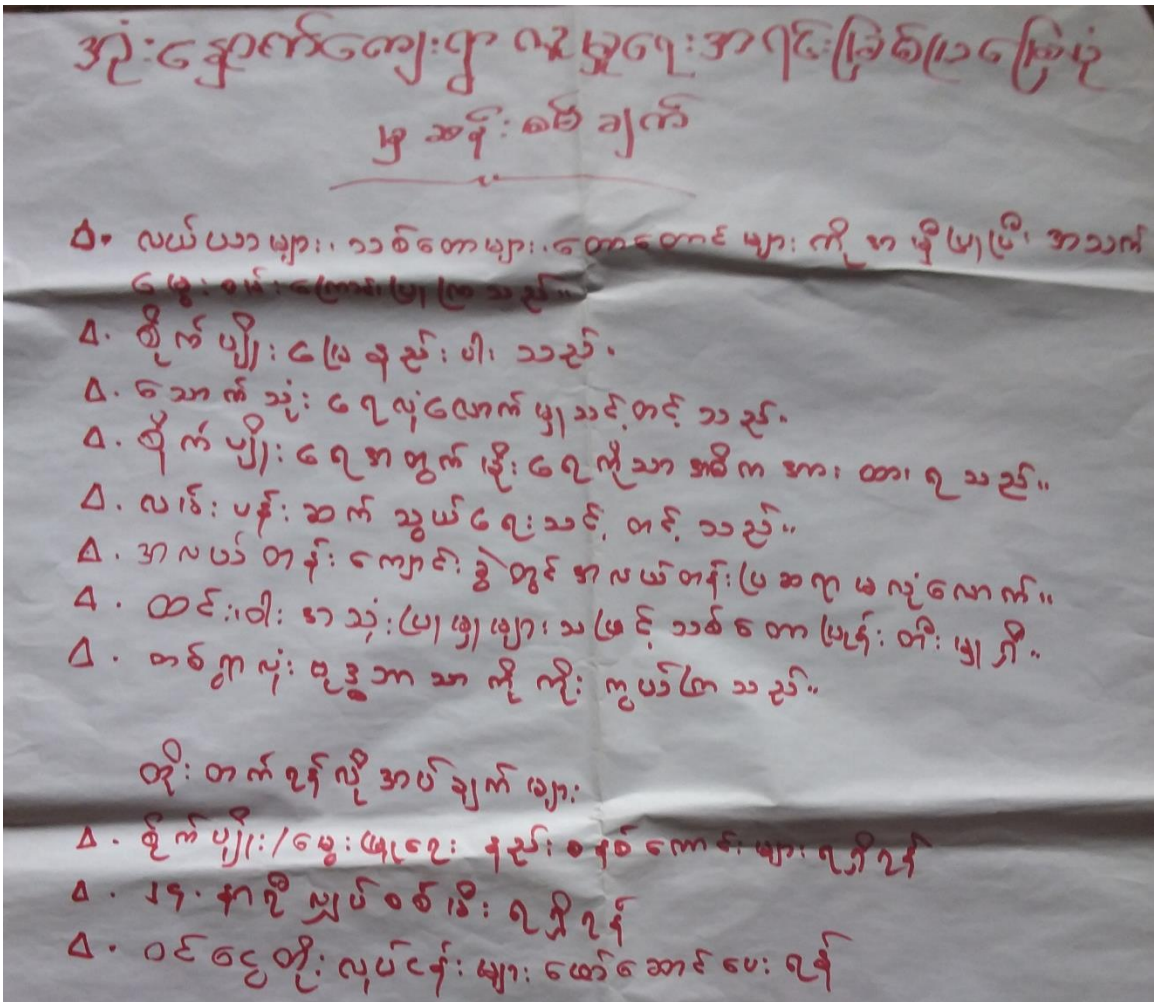 အုံးနှောက်ကျေးရွာ လူမှုရေးအရင်းဖြစ်ပြောင်းပုံ
မှ ဆန်းစစ်ချက်
Δ. လယ်ယာများ၊ သစ်တောများ၊ တောတောင်များ ကို အမှီပြုပြီး အသက်
မွေးဝမ်းကျောင်းပြုကြသည်။
Δ. စိုက်ပျိုးမြေ နည်းပါး သည်။
Δ. သောက်သုံးရေလုံလောက်မှု သင့်တင့် သည်။
Δ. စိုက်ပျိုးရေအတွက် မိုးရေကိုသာ အဓိက အားထားရသည်။
Δ. လမ်းပန်းဆက်သွယ်ရေးသင့်တင့်သည်။
Δ. အလယ်တန်းကျောင်းခွဲတွင် အလယ်တန်းပြဆရာ မလုံလောက်။
Δ. ထင်းဝါးအသုံးပြုမှုများသဖြင့် သစ်တောပြုန်းတီးမှုရှိ။
Δ. တစ်ရွာလုံး ဗုဒ္ဓဘာသာကိုကိုးကွယ်ကြသည်။
တိုးတက်ရန်လိုအပ်ချက်များ
Δ. စိုက်ပျိုး/မွေးမြူရေး နည်းစနစ်ကောင်းများရရှိရန်
Δ. ၂၄ နာရီ လျှပ်စစ်မီး ရရှိရန်
Δ. ဝင်ငွေတိုးလုပ်ငန်းများ ဖော်ဆောင်ပေးရန်